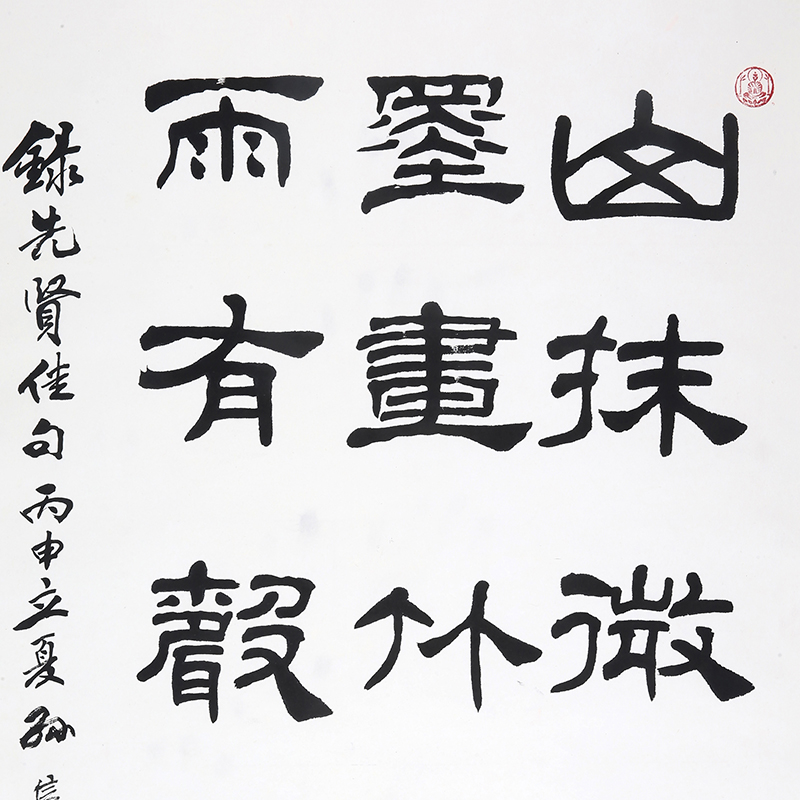 山抹微
墨畫竹
雨有聲
錄先賢佳句丙申立夏孫信